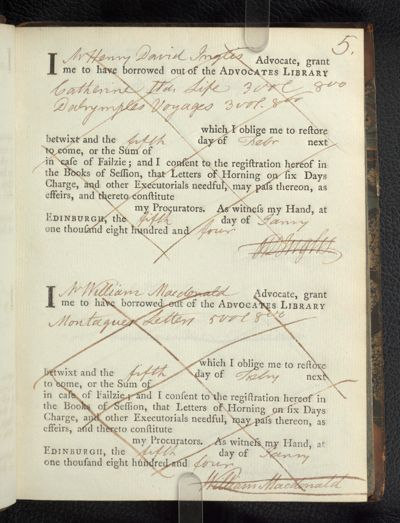 5.
I Mr Henry David Inglis Advocate, grant
me to have borrowed out of the ADVOCATES LIBRARY
Catherine IIds Life 3 vol 8vo
Dalrymples Voyages 3 vol 8vo
which I oblige me to reſtore
betwixt and the fifth day of Febr next
to come, or the Sum of
in caſe of Failzie; and I conſent to the regiſtration hereof in
the Books of Seſſion, that Letters of Horning on ſix Days
Charge, and other Executorials needful, may paſs thereon, as
effeirs, and thereto conſtitute
my Procurators. As witneſs my Hand, at
EDINBURGH, the fifth day of Janry
one thouſand eight hundred and four
HD Inglis
I Mr William Macdonald Advocate, grant
me to have borrowed out of the ADVOCATES LIBRARY
Montagues Letters 5 vol 8vo
which I oblige me to reſtore
betwixt and the fifth day of Febry next
to come, or the Sum of
in caſe of Failzie; and I conſent to the regiſtration hereof in
the Books of Seſſion, that Letters of Horning on ſix Days
Charge, and other Executorials needful, may paſs thereon, as
effeirs, and thereto conſtitute
my Procurators. As witneſs my Hand, at
EDINBURGH, the fifth day of Janry
one thouſand eight hundred and four
William Macdonald